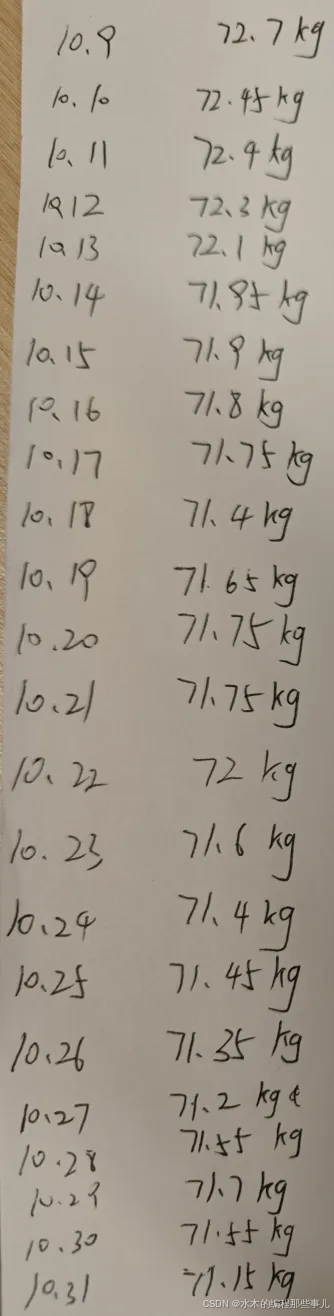 10.9 72.7 kg
10.10 72.45 kg
10.11 72.4 kg
10.12 72.3 kg
10.13 72.1 kg
10.14 71.95 kg
10.15 71.9 kg
10.16 71.8 kg
10.17 71.75 kg
10.18 71.4 kg
10.19 71.65 kg
10.20 71.75 kg
10.21 71.75 kg
10.22 72 kg
10.23 71.6 kg
10.24 71.4 kg
10.25 71.45 kg
10.26 71.35 kg
10.27 71.2 kg
10.28 71.55 kg
10.29 71.7 kg
10.30 71.55 kg
10.31 71.15 kg
CSDN @水木的编程那些事儿